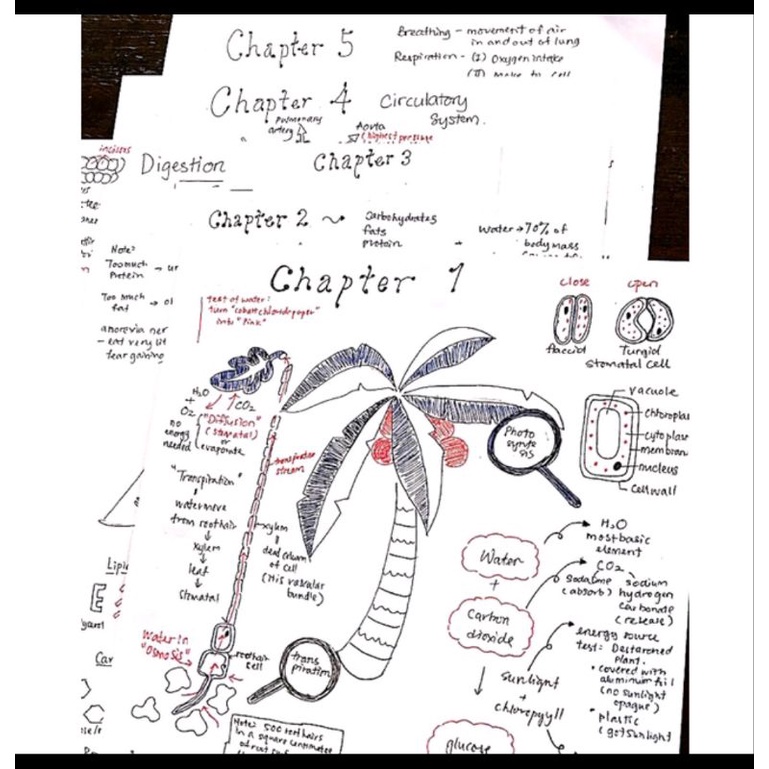 Chapter 5
Breathing - movement of air
in and out of lung
Respiration - (I) Oxygen intake
Chapter 4
Circulatory
System.
Pulmonary
artery
Aorta
(highest pressure
incisors
Digestion
Chapter 3
Chapter 2
Carbohydrates
fats
protein
Water → 70% of
body mass
Note:
Too much
Protein → ur
Too much
fat → ol
anorexia ner
- eat very lit
fear gaining
Chapter 1
test of water:
turn "cobalt chloride paper"
into "Pink"
close
open
flaccid
Turgid
Stomatal cell
H₂O
+
O₂
CO₂
no
energy
needed
"Diffusion"
(stomatal)
or
evaporate
transpiration
stream
Photo
synte
sis
vacuole
chloroplas
cytoplase
membran
nucleus
Cell wall
"Transpiration"
water move
from root hair
↓
xylem
↓
leaf
↓
Stomatal
xylem
||
dead cream
of cell
(His vascular
bundle)
Water in
"Osmosis"
root hair
cell
trans
piration
Water
+
Carbon
dioxide
↓
Sunlight
+
chloropyll
glucose
H₂O
most basic
element
CO₂
soda lime
(absorb)
sodium
hydrogen
carbonate
(release)
energy source
test: Destarched
plant.
• covered with
aluminum foil
(no sunlight
opaque)
• plastic
(got sunlight
Lipi
E
Car
Note: 500 root hairs
in a square centimetre